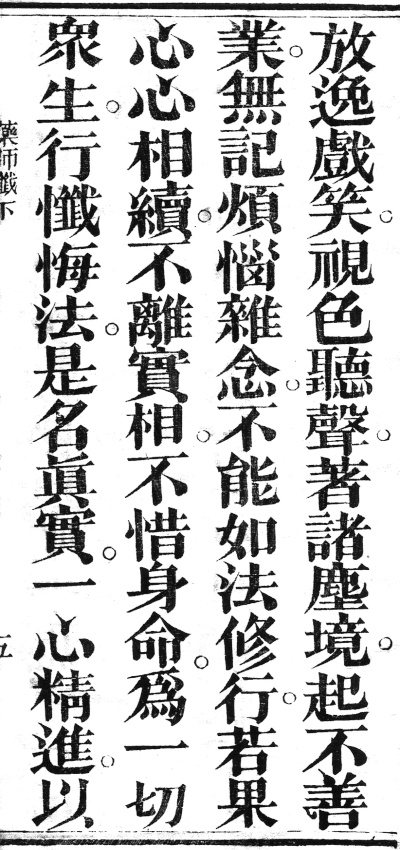 放逸戲笑。視色聽聲。著諸塵境。起不善
業。無記煩惱雜念。不能如法修行。若果
心心相續。不離實相。不惜身命。爲一切
衆生。行懺悔法。是名眞實。一心精進。以
藥師懺下
五